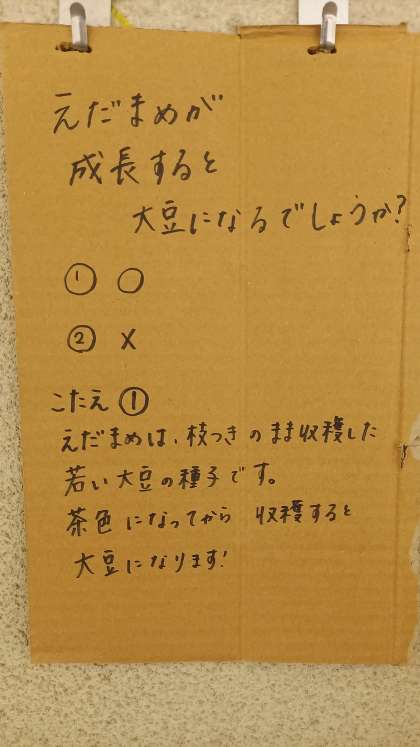 えだまめが
成長すると
大豆になるでしょうか?
① ○
② ×
こたえ ①
えだまめは、枝つきのまま収穫した
若い大豆の種子です。
茶色になってから 収穫すると
大豆になります!